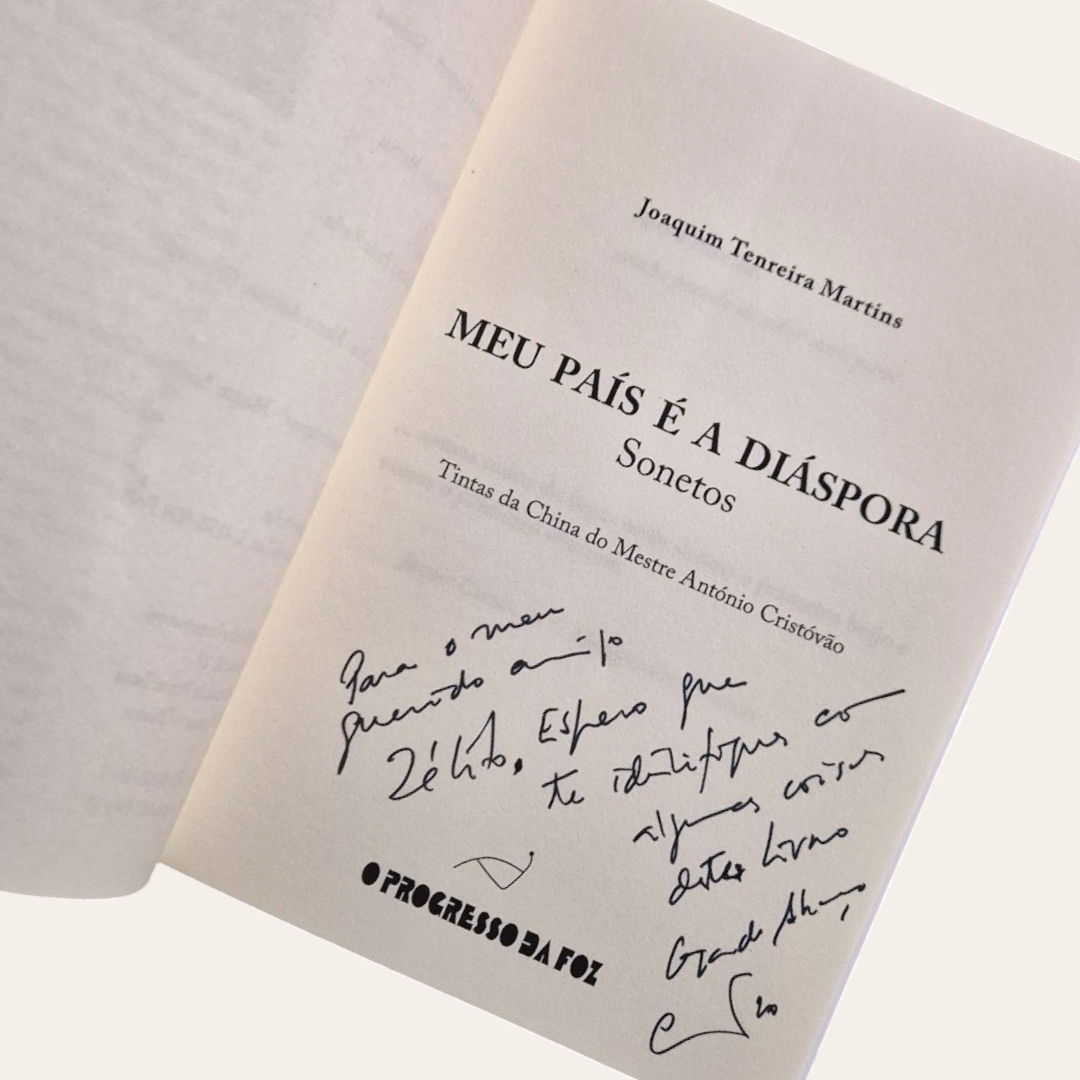 Joaquim Tenreira Martins
MEU PAÍS É A DIÁSPORA
Sonetos
Tintas da China do Mestre António Cristóvão
Para o meu
querido amigo
Zélito. Espero que
te identifiques co
algumas coisas
deste livro
Grande Abraço
O PROGRESSO DA FOZ